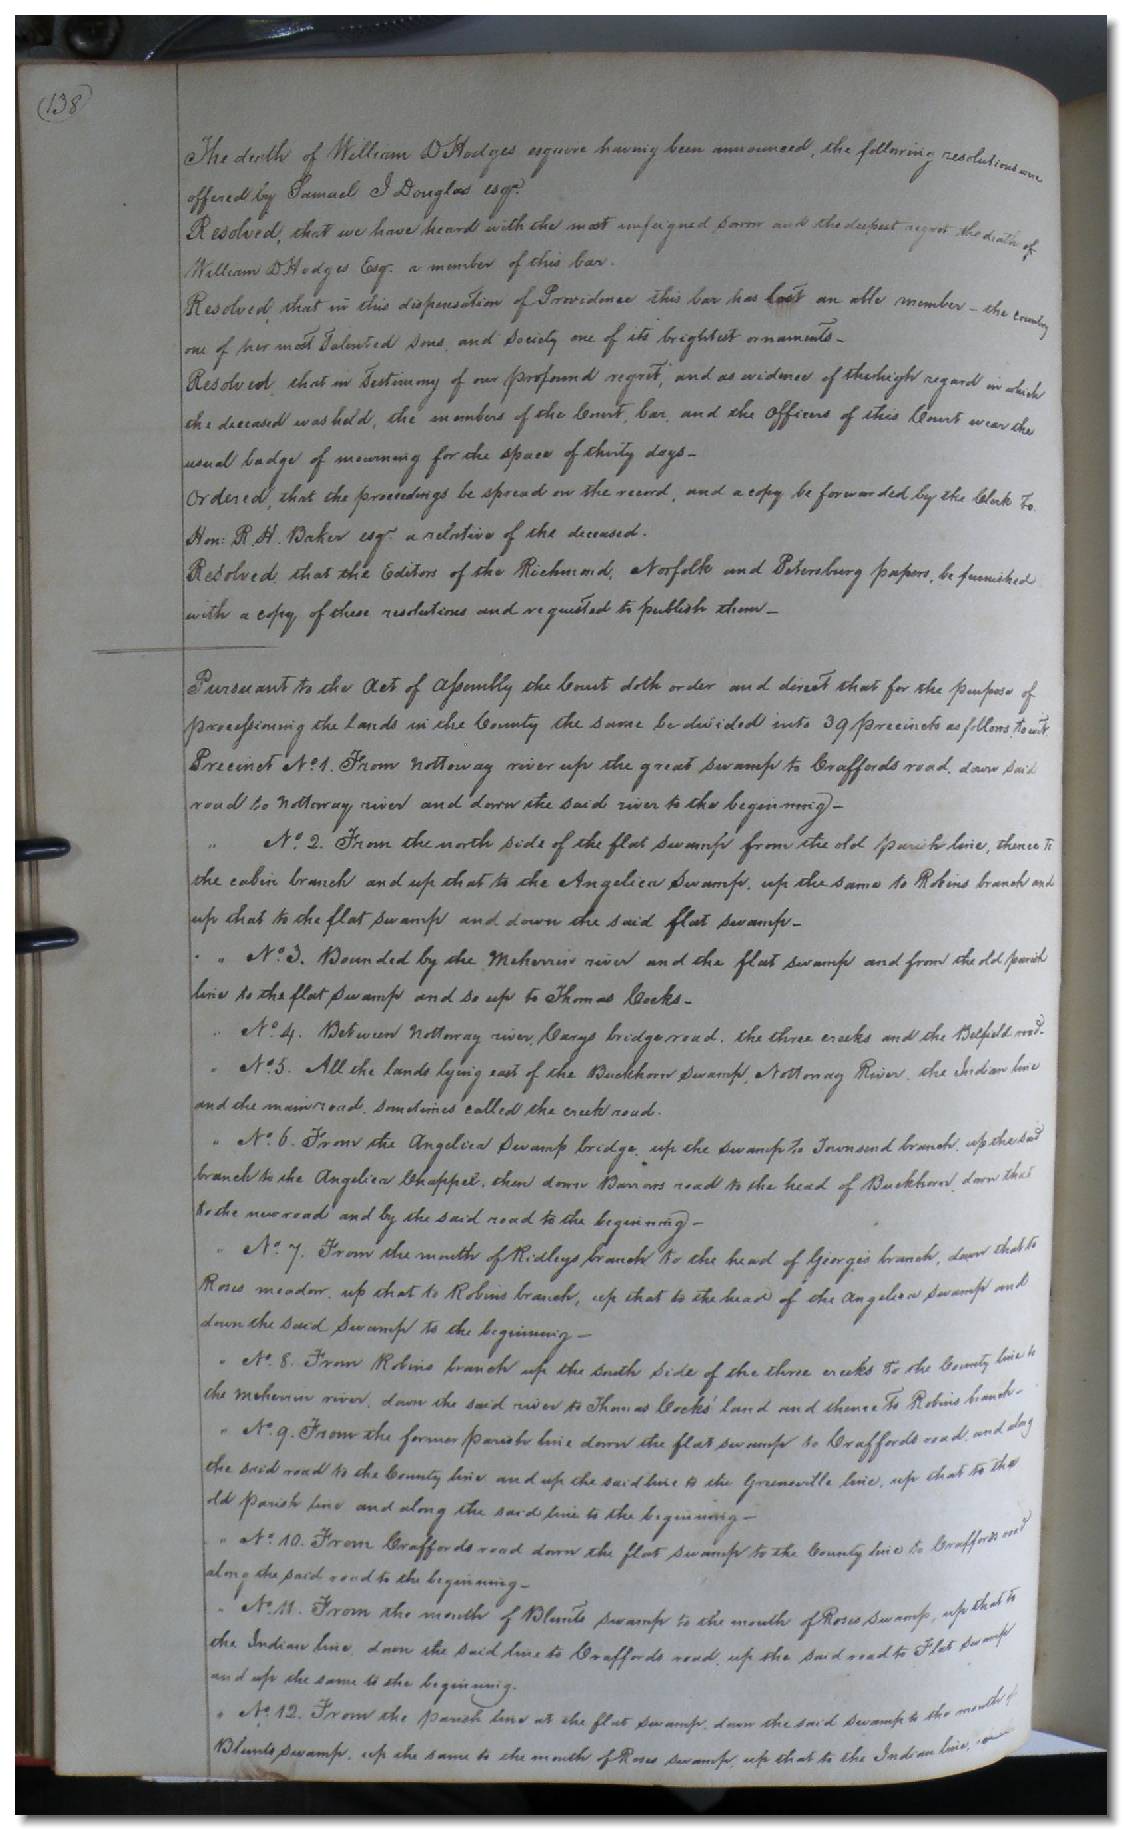 (138)
The death of William D Hodges esquire having been announced, the following resolutions were
offered by Samuel I Douglas esqr.
Resolved, that we have heard with the most unfeigned sorrow and the deepest regret the death of
William D Hodges Esqr. a member of this bar.
Resolved, that in this dispensation of Providence this bar has lost an able member – the country
one of her most Talented sons, and society one of its brightest ornaments –
Resolved, that in Testimony of our profound regret, and as evidence of the high regard in which
the deceased was held, the members of the Court, bar, and the Officers of this Court wear the
usual badge of mourning for the space of thirty days –
Ordered, that the proceedings be spread on the record, and a copy be forwarded by the Clerk to
Hon: R. H. Baker esqr. a relative of the deceased.
Resolved, that the Editors of the Richmond, Norfolk and Petersburg papers, be furnished
with a copy of these resolutions and requested to publish them –
Pursuant to the Act of Assembly the Court doth order and direct that for the purpose of
processioning the Lands in the County the same be divided into 39 precincts as follows, to wit.
Precinct No. 1. From Nottoway river up the great swamp to Craffords road, down said
road to Nottoway river and down the said river to the beginning –
" No. 2. From the north side of the flat swamp from the old parish line, thence to
the cabin branch and up that to the Angelica Swamp, up the same to Robins branch and
up that to the flat swamp and down the said flat swamp –
" No. 3. Bounded by the Meherrin river and the flat swamp and from the old parish
line to the flat swamp and so up to Thomas Cocks –
" No. 4. Between Nottoway river, Carys bridge road, the three creeks and the Belfield road.
" No. 5. All the lands lying east of the Buckhorn Swamp, Nottoway River, the Indian line
and the main road, sometimes called the creek road.
" No. 6. From the Angelica Swamp bridge, up the swamp to Townsend branch, up the said
branch to the Angelica Chappel, then down Barrows road to the head of Buckhorn, down that
to the new road and by the said road to the beginning –
" No. 7. From the mouth of Ridleys branch to the head of Georges branch, down that to
Roses meadow, up that to Robins branch, up that to the head of the Angelica Swamp and
down the said Swamp to the beginning –
" No. 8. From Robins branch up the south side of the three creeks to the County line to
the Meherrin river, down the said river to Thomas Cocks' land and thence to Robins branch –
" No. 9. From the former parish line down the flat swamp to Craffords road, and along
the said road to the County line and up the said line to the Greensville line, up that to the
old parish line and along the said line to the beginning –
" No. 10. From Craffords road down the flat swamp to the County line to Craffords road
along the said road to the beginning –
" No. 11. From the mouth of Blunts swamp to the mouth of Roses swamp, up that to
the Indian line, down the said line to Craffords road, up the said road to Flat swamp
and up the same to the beginning.
" No. 12. From the parish line at the flat swamp, down the said swamp to the mouth of
Blunts swamp, up the same to the mouth of Roses swamp, up that to the Indian line,